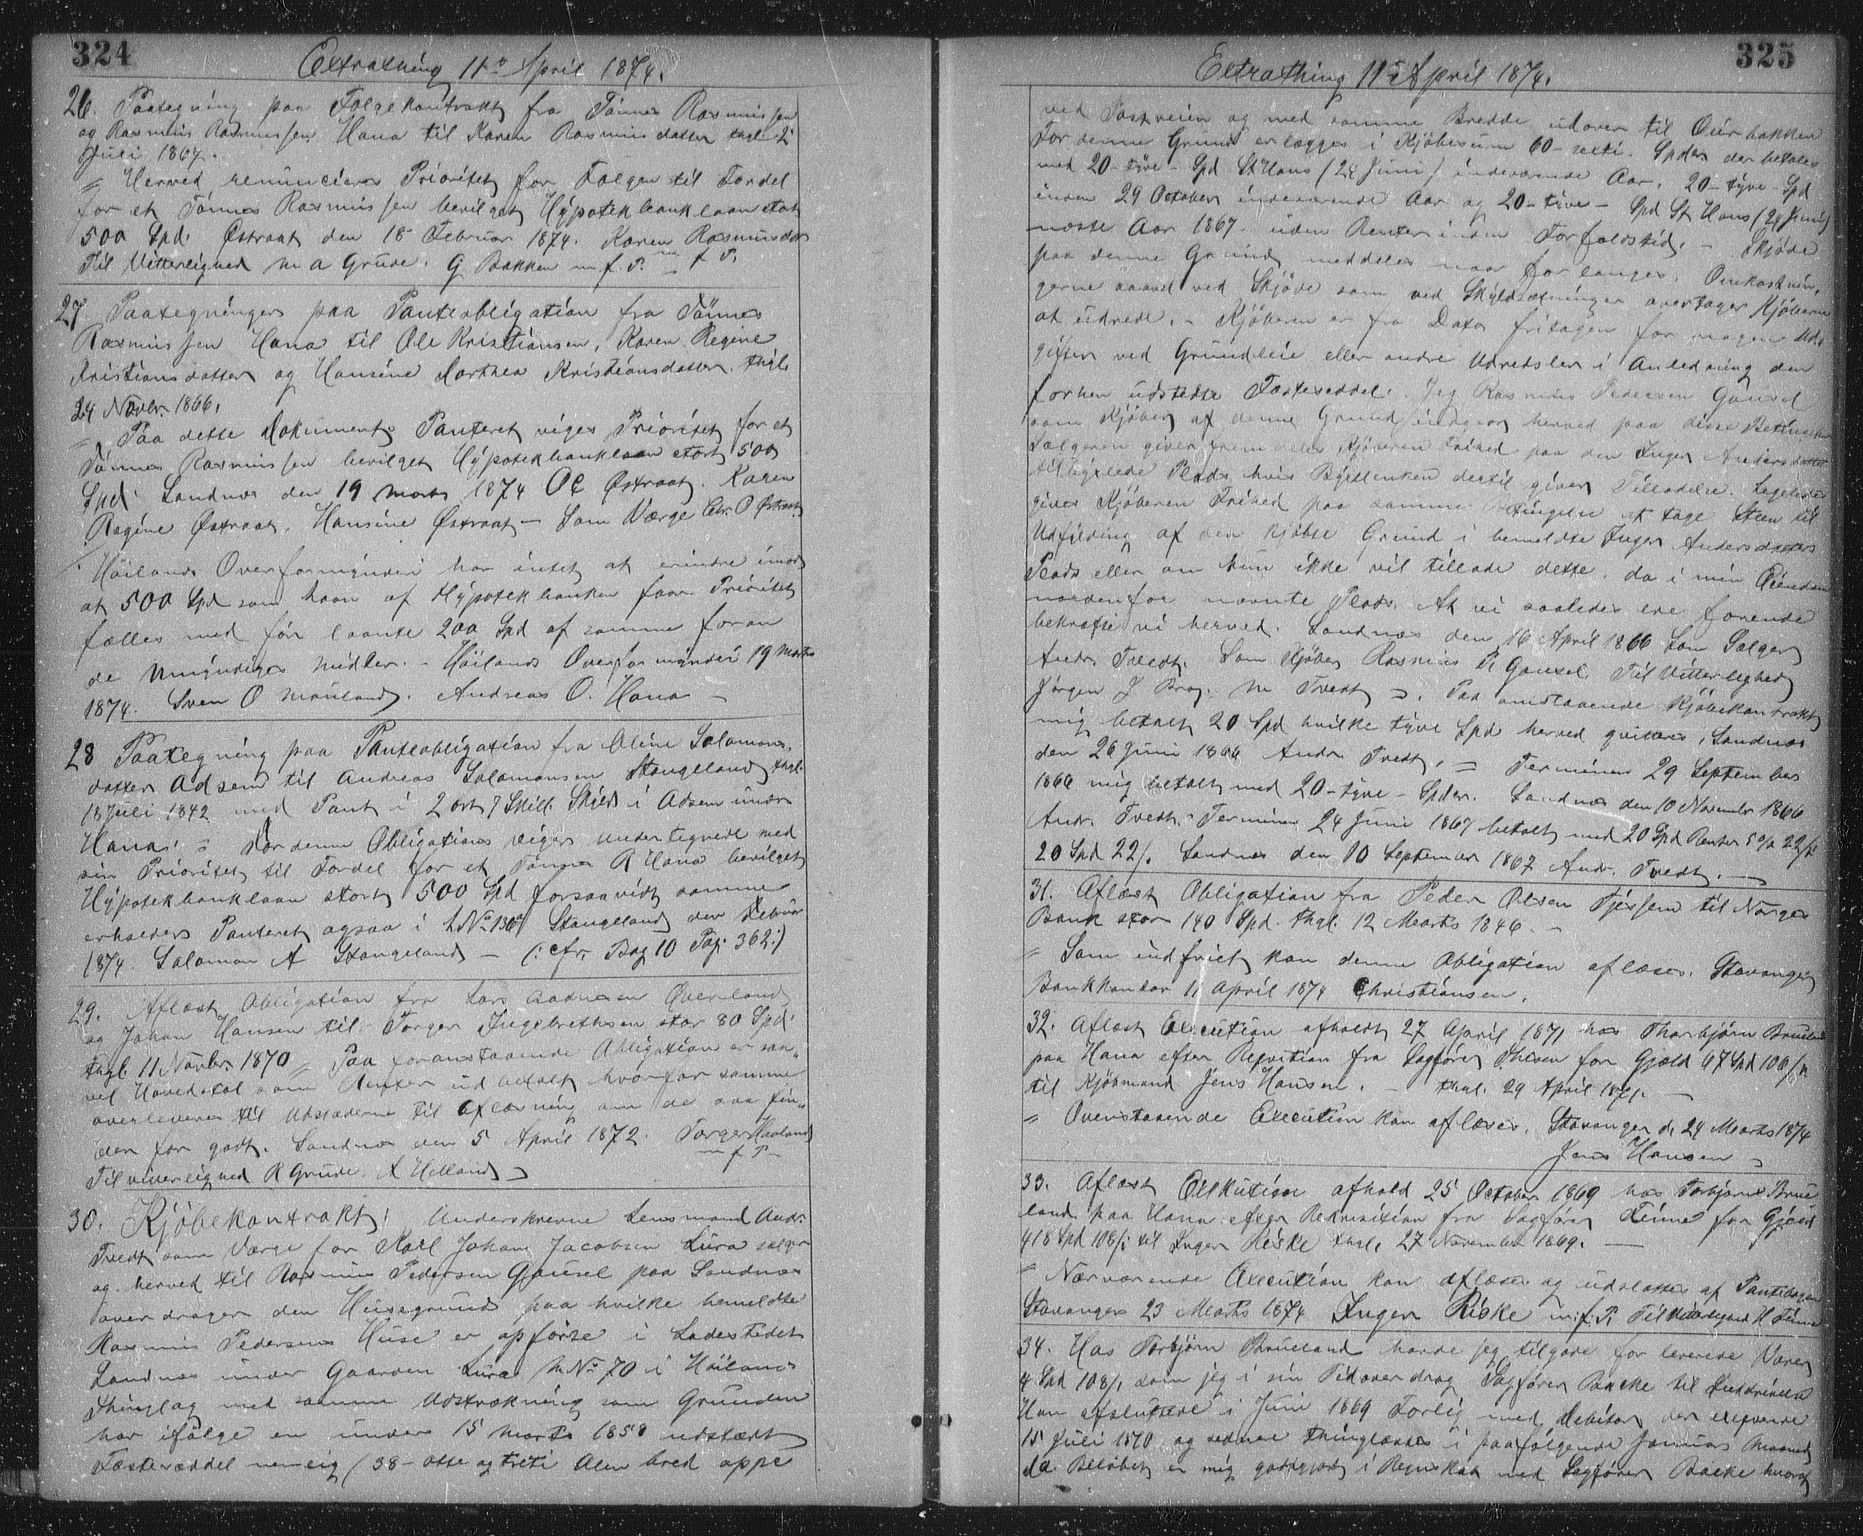 324
Extrathing 11te April 1874.
26. Paategning paa Følgekontrakt fra Tønnes Rasmussen
og Rasmus Rasmussen Hana til Karen Rasmusdatter thgl. 2
Juli 1867.
" Herved renuncieres Prioritet for Følgen til Fordel
for et Tønnes Rasmussen bevilget Hypotekbanklaan stort
500 Spd. Østraat den 18 Februar 1874. Karen Rasmusdat
Til Vitterlighed M A Grude. G Bakken m.f.P. m f P.
27. Paategninger paa Panteobligation fra Tönnes
Rasmussen Hana til Ole Kristiansen, Karen Regine
Kristiansdatter og Hansine Marthea Kristiansdatter thgl.
24 Novbr. 1866.
" Paa dette Dokuments Panteret viges Prioritet for et
Tönnes Rasmussen bevilget Hypotekbanklaan stort 500
Spd. Sandnæs den 19 Marts 1874 O C Østraat. Karen
Regine Østraat. Hansine Østraat - Som Værge Chr. O Østraat
" Höilands Overformynderi har intet at erindre imod
at 500 Spd som laan af Hypotekbanken faar Prioritet
fælles med før laante 200 Spd af samme foran
de Umyndiges Midler. - Höilands Overformynderi 19 Marts
1874. Sven O Mauland. Andreas O. Hana -
28 Paategning paa Panteobligation fra Oline Salomons-
datter Adsem til Andreas Salomonsen Stangeland thgl.
18 Juli 1842 med Pant i 2 ort 7 Skill. Skyld i Adsem under
Hana: " For denne Obligation viger undertegnede med
sin Prioritet til Fordel for et Tønnes R Hana bevilget
Hypotekbanklaan stort 500 Spd forsaavidt samme
erholder Panteret ogsaa i LNo 130 Stangeland den Februar
1874. Salomon A Stangeland - (: cfr. Bog 10 Pag: 362:)
29. Aflæst Obligation fra Lars Aadnesen Øverland
og Johan Hansen til Torger Ingebrethsen stor 80 Spd.
thgl. 11 Novbr. 1870 " Paa foranstaaende Obligation er saa-
vel Hovedstol som Renter udbetalt hvorfor samme
overleveres til Udstæderne til Aflæsning om de saa fin-
der for godt. Sandnæs den 5 April 1872. Torger Haaland
Til Vitterlighed R Grude. A Helland m f P
30. Kjöbekontrakt! Underskrevne Lensmand Andr.
Tvedt som Værge for Karl Johan Jacobsen Lura sælger
og herved til Rasmus Pedersen Gausel paa Sandnæs
overdrager den Husegrund paa hvilke bemeldte
Rasmus Pedersens Huse er opførte i Ladestedet
Sandnæs under Gaarden Lura MNo 70 i Höilands
Thinglag med samme Udstrækning som Grunden
har ifølge en under 15 Marts 1858 udstædt
Fæsteseddel nemlig (38- otte og treti Alen bred oppe
325
Extrathing 11te April 1874.
ved Postveien og med samme Bredde udover til Øurbakken
For denne Grund erlægges i Kjöbesum 60 - sexti - Spdr. der betales
med 20 - tyve - Spd St Hans (24 Juni) indeværende Aar, 20 - tyve - Spd
inden 29 October indeværende Aar og 20 - tyve - Spd St Hans (24 Juni)
næste Aar 1867 uden Renter inden Forfaldstid. - Skjøde
paa denne Grund meddeles naar forlanges. Omkostnin-
gerne saavel ved Skjøde som ved Skyldsætninger overtager Kjøberen
at udrede. - Kjøberen er fra Dato fritagen for nogen Ud-
gifter ved Grundleie eller andre Udredsler i Anledning den
forhen udstedte Fæsteseddel. Jeg Rasmus Pedersen Gausel
som Kjøber af denne Grund indgaar herved paa disse Betingelser
Sælgeren giver fremdeles Kjøberen Frihed paa den Inger Andersdatter
tilbyxlede Plads, hvis Byxlenken dertil giver Tilladelse. Ligeledes
gives Kjøberen Frihed paa samme Betingelse at tage Steen til
Udfylding af den kjøbte Grund i bemeldte Inger Andersdatters
Plads eller om hun ikke vil tillade dette, da i min Eiendom
nordenfor nævnte Plads. At vi saaledes ere forenede
bekræfte vi herved. Sandnæs den 16 April 1866 Som Sælger
Andr. Tvedt. Som Kjøber Rasmus P. Gausel Til Vitterlighed
Jørgen J Brag. M Tvedt " . Paa omstaaende Kjöbekontrakt
mig betalt 20 Spd hvilke tyve Spd herved qvitteres. Sandnæs
den 26 Juni 1866 Andr Tvedt. " Terminen 29 September
1866 mig betalt med 20 - tyve - Spdr. Sandnæs den 10 November 1866
Andr. Tvedt. " Terminen 24 Juni 1867 betalt med 20 Spd Renter 5 o/o 22/s
20 Spd 22/s. Sandnæs den 10 September 1867 Andr. Tvedt.
31. Aflæst Obligation fra Peder Olsen Tjessem til Norges
Bank stor 140 Spd. thgl. 12 Marts 1846. -
" Som indfriet kan denne Obligation aflæses. Stavanger
Bankkontor 11 April 1874 Christiansen.
32. Aflæst Execution afholdt 27 April 1871 hos Thorbjørn Brueland
paa Hana efter Reqvition fra Sagfører Ihlsen for Gjæld 47 Spd 100/s
til Kjöbmand Jens Hansen. - thgl. 29 April 1871. -
" Ovenstaaende Execution kan aflæses. Stavanger d. 24 Marts 1874
Jens Hansen
33. Aflæst Exekution afhold 25 October 1869 hos Torbjørn Brue
land paa Hana efter Rekvisition fra Sagfører Feine for Gjæld
418 Spd 108/s til Inger Riske thgl. 27 November 1869. -
" Nærværende Execution kan aflæses og udslettes af Pantebogen
Stavanger 23 Marts 1874 Inger Riske m.f.P. Til Vitterlighed H Feine
34. Hos Torbjörn Brueland havde jeg tilgode for leverede Varer
4 Spd 108/s som jeg i sin Tid overdrog Sagfører Backe til Inddrivelse
Han afsluttede i Juni 1869 Forlig med Debitor der exeqverede
15 Juli 1870 og sednere thinglæstes i paafølgende Januar Maaned
da Beløbet er mig godtgjort i Regnskab med Sagfører Backe hvoraf